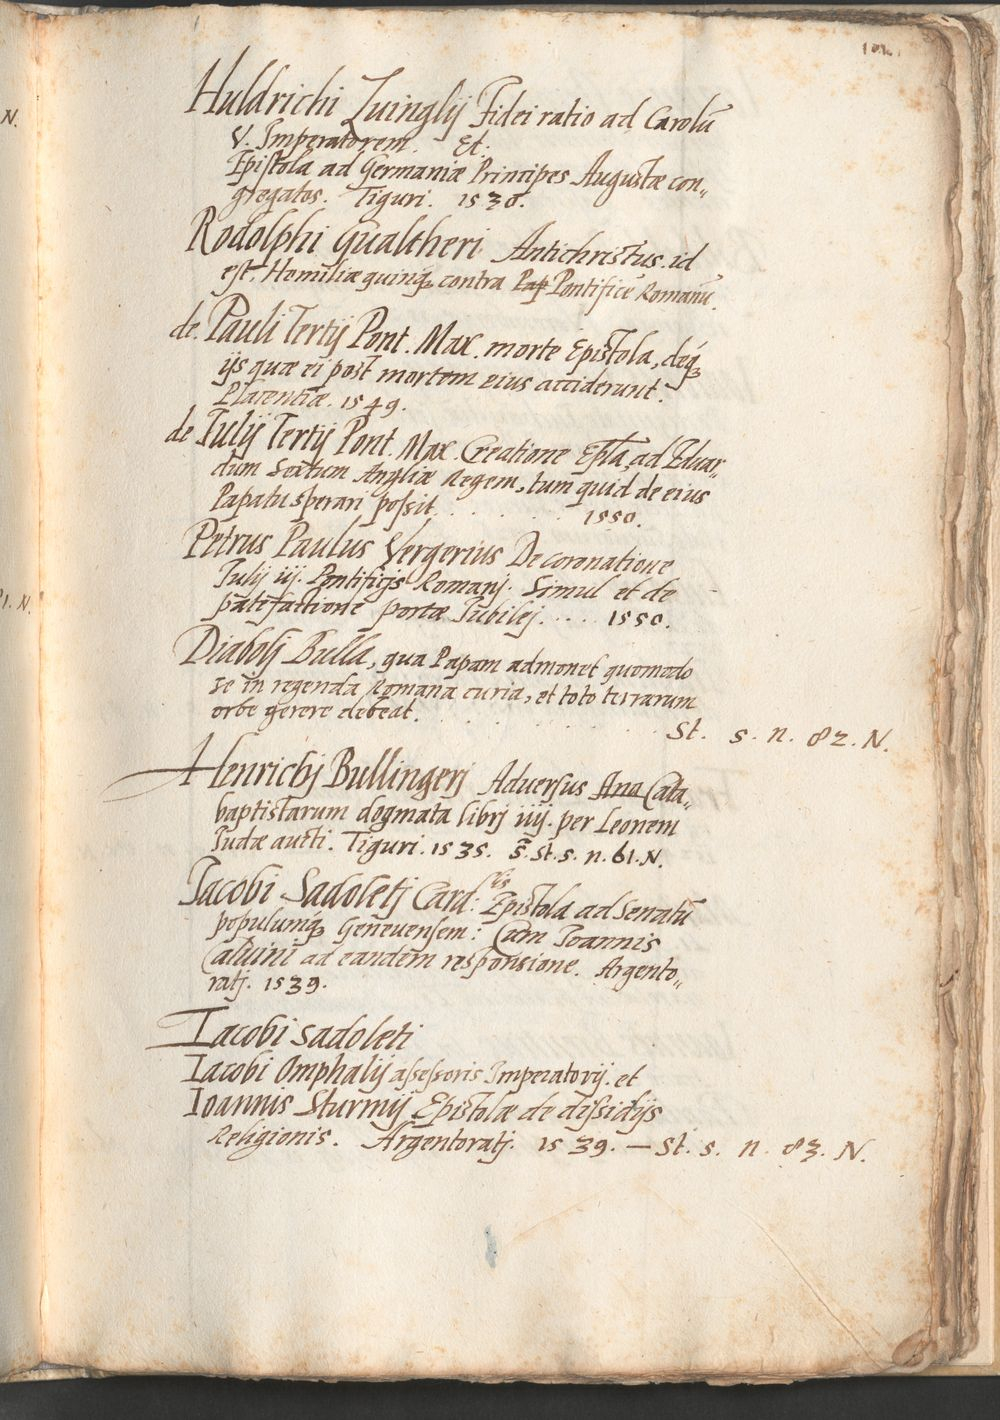 Huldrichi Zuinglij Fidei ratio ad Carolū
V. Imperatorem. Et:
Epistola ad Germaniæ Principes Augustæ con„
gregatos. Tiguri. 1530.
Rodolphi Gualtheri Antichristus. id
est, Homiliæ quinqꝫ contra Pap Pontificē Romanū.
de. Pauli Tertij Pont. Max. morte Epistola, deqꝫ
ijs quæ ei post mortem eius acciderunt.
Placentiæ. 1549.
de Iulij Tertij Pont. Max. Creatione Epl̄a ad Eduar„
dum sextum Angliæ Regem, tum quid de eius
Papatu sperari possit. . . . . . 1550.
Petrus Paulus Vergerius De coronatione
Iulij iij. Pontificijs Romanj. Simul et de
patefactione portæ Iubilej. . . . . 1550.
Diabolj Bulla, qua Papam admonet quomodo
se in regenda Romana curia, et toto terrarum
orbe gerere debeat. . . . . . . . . . . St. s. n. 82. N.
Henrichj Bullingerj Aduersus Ana Cata„
baptistarum dogmata librj iiij. per Leonem
Iudæ aucti. Tiguri. 1535. S. St. s. n. 61. N.
Iacobi Sadoletj Card:lis Epistola ad Senatū
populumqꝫ Geneuensem: Cum Ioannis
Caluini ad eandem responsione. Argento„
ratj. 1539.
Iacobi Sadoleti
Iacobi Omphalij assessoris Imperatorij. et
Ioannis Sturmij Epistolæ de dissidijs
Religionis. Argentoratj. 1539. — St. s. n. 83. N.
N.